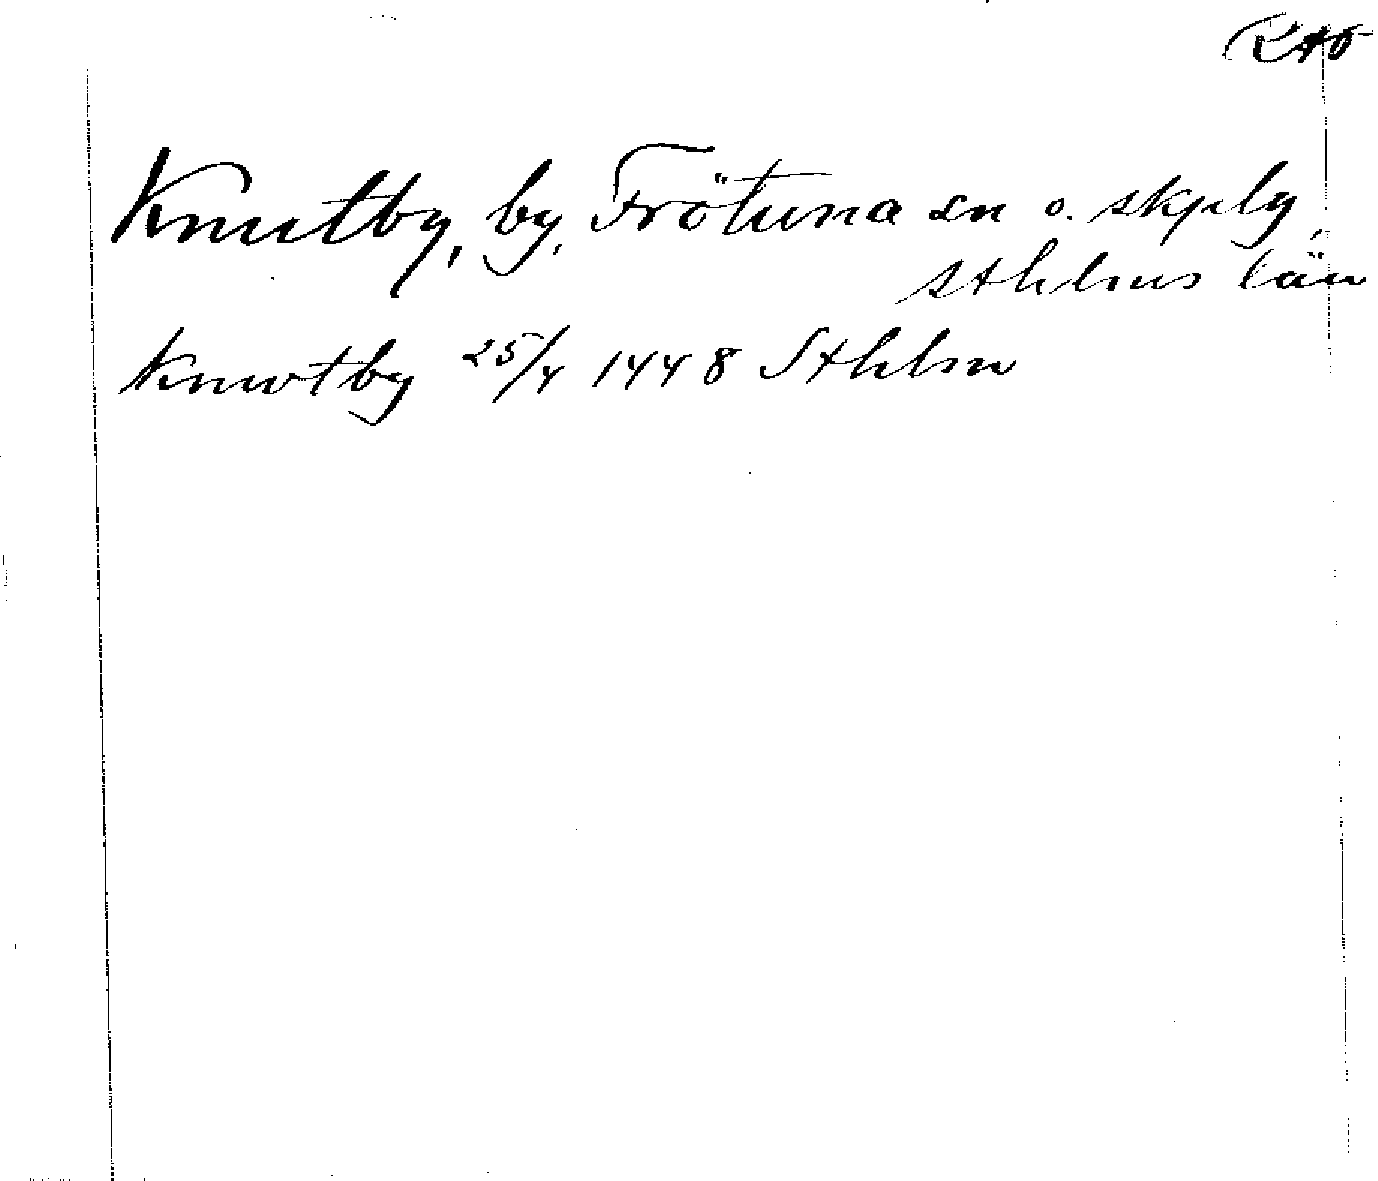 RAÖ
Knutby, by, Frötuna sn o. skplg,
Sthlms län
Knwtby 25/4 1448 Sthlm